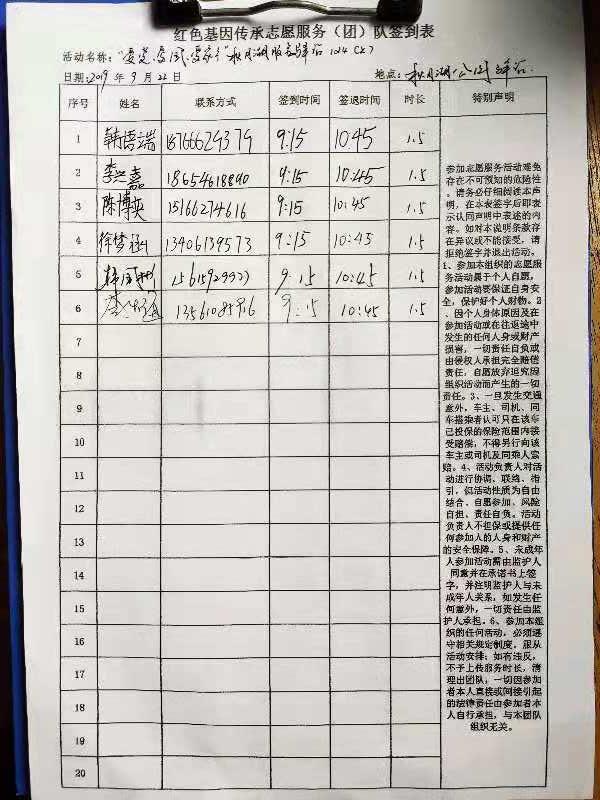 红色基因传承志愿服务（团）队签到表
活动名称：
日期：2019年9月22日 地点：
序号 姓名 联系方式 签到时间 签退时间 时长 特别声明
1 韩语端 18766629379 9:15 10:45 1.5
2 18654618890 9:15 10:45 1.5
3 陈博英 15166274616 9:15 10:45 1.5
4 徐梦涵 13406139573 9:15 10:45 1.5
5 9:15 10:45 1.5
6 9:15 10:45 1.5
7
8
9
10
11
12
13
14
15
16
17
18
19
20
参加志愿服务活动难免
存在不可预知的危险性
，请务必仔细阅读本声
明，在本表签字后即表
示认同声明中表述的内
容。如对本说明条款存
在异议或不能接受，请
拒绝签字并退出活动。
1、参加本组织的志愿服
务活动属于个人自愿，
参加活动要保证自身安
全，保护好个人财物。2
、因个人身体原因及在
参加活动或在往返途中
发生的任何人身或财产
损害，一切责任自负或
由侵权人承担完全赔偿
责任，自愿放弃追究因
组织活动而产生的一切
责任。3、一旦发生交通
意外，车主、司机、同
车搭乘者认可只在该车
已投保的保险范围内接
受赔偿，不得另行向该
车主或司机及同乘人索
赔。4、活动负责人对活
动进行协调、联络、指
引，但活动性质为自由
结合、自愿参加、风险
自担、责任自负。活动
负责人不担保或提供任
何参加人的人身和财产
的安全保障。5、未成年
人参加活动需由监护人
同意并在承诺书上签
字，并注明监护人与未
成年人关系，如发生任
何意外，一切责任由监
护人承担。6、参加本组
织的任何活动，必须遵
守相关规定制度，服从
活动安排；如有违反，
不予上传服务时长，清
理出团队，一切因参加
者本人直接或间接引起
的法律责任由参加者本
人自行承担，与本团队
组织无关。